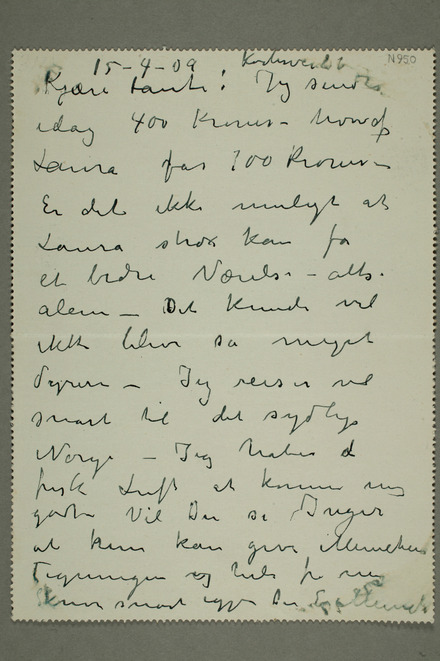 N 950
15-4-09
Kjære tante! Jeg sender
idag 400 Kroner – hvoraf
Laura får 100 Kroner –
Er det ikke muligt at
Laura strax kan få
et bedre Værelse –
alene – Det kunde vel
ikke blive så meget
dyrere – Jeg reiser vel
snart til det sydlige
Norge – Jeg haber
frisk Luft at komme mig
godt Vil Du se Inger
at hun kan give
Tegninger og hils fra mig
snart igjen Din